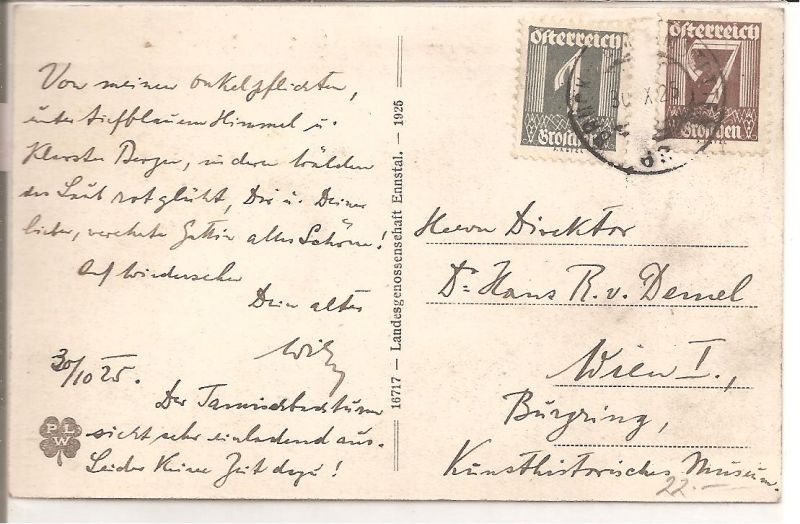 Von meinen Onkelpflichten,
unter tiefblauem Himmel u.
klarsten Bergen, in deren Wäldern
das Laub rotglüht, Dir u. Deiner
lieben, verehrten Gattin alles Schöne!
Auf Wiedersehen
Dein alter
Willy
30/10 25.
Der
sieht sehr einladend aus.
Leider keine Zeit dazu!
P L W
16717 — Landesgenossenschaft Ennstal. — 1925
Österreich
1
Groschen
Österreich
7
Groschen
30 X 25
Herrn Direktor
Dr. Hans R. v. Demel
Wien I.,
Burgring,
Kunsthistorisches Museum.
22.—